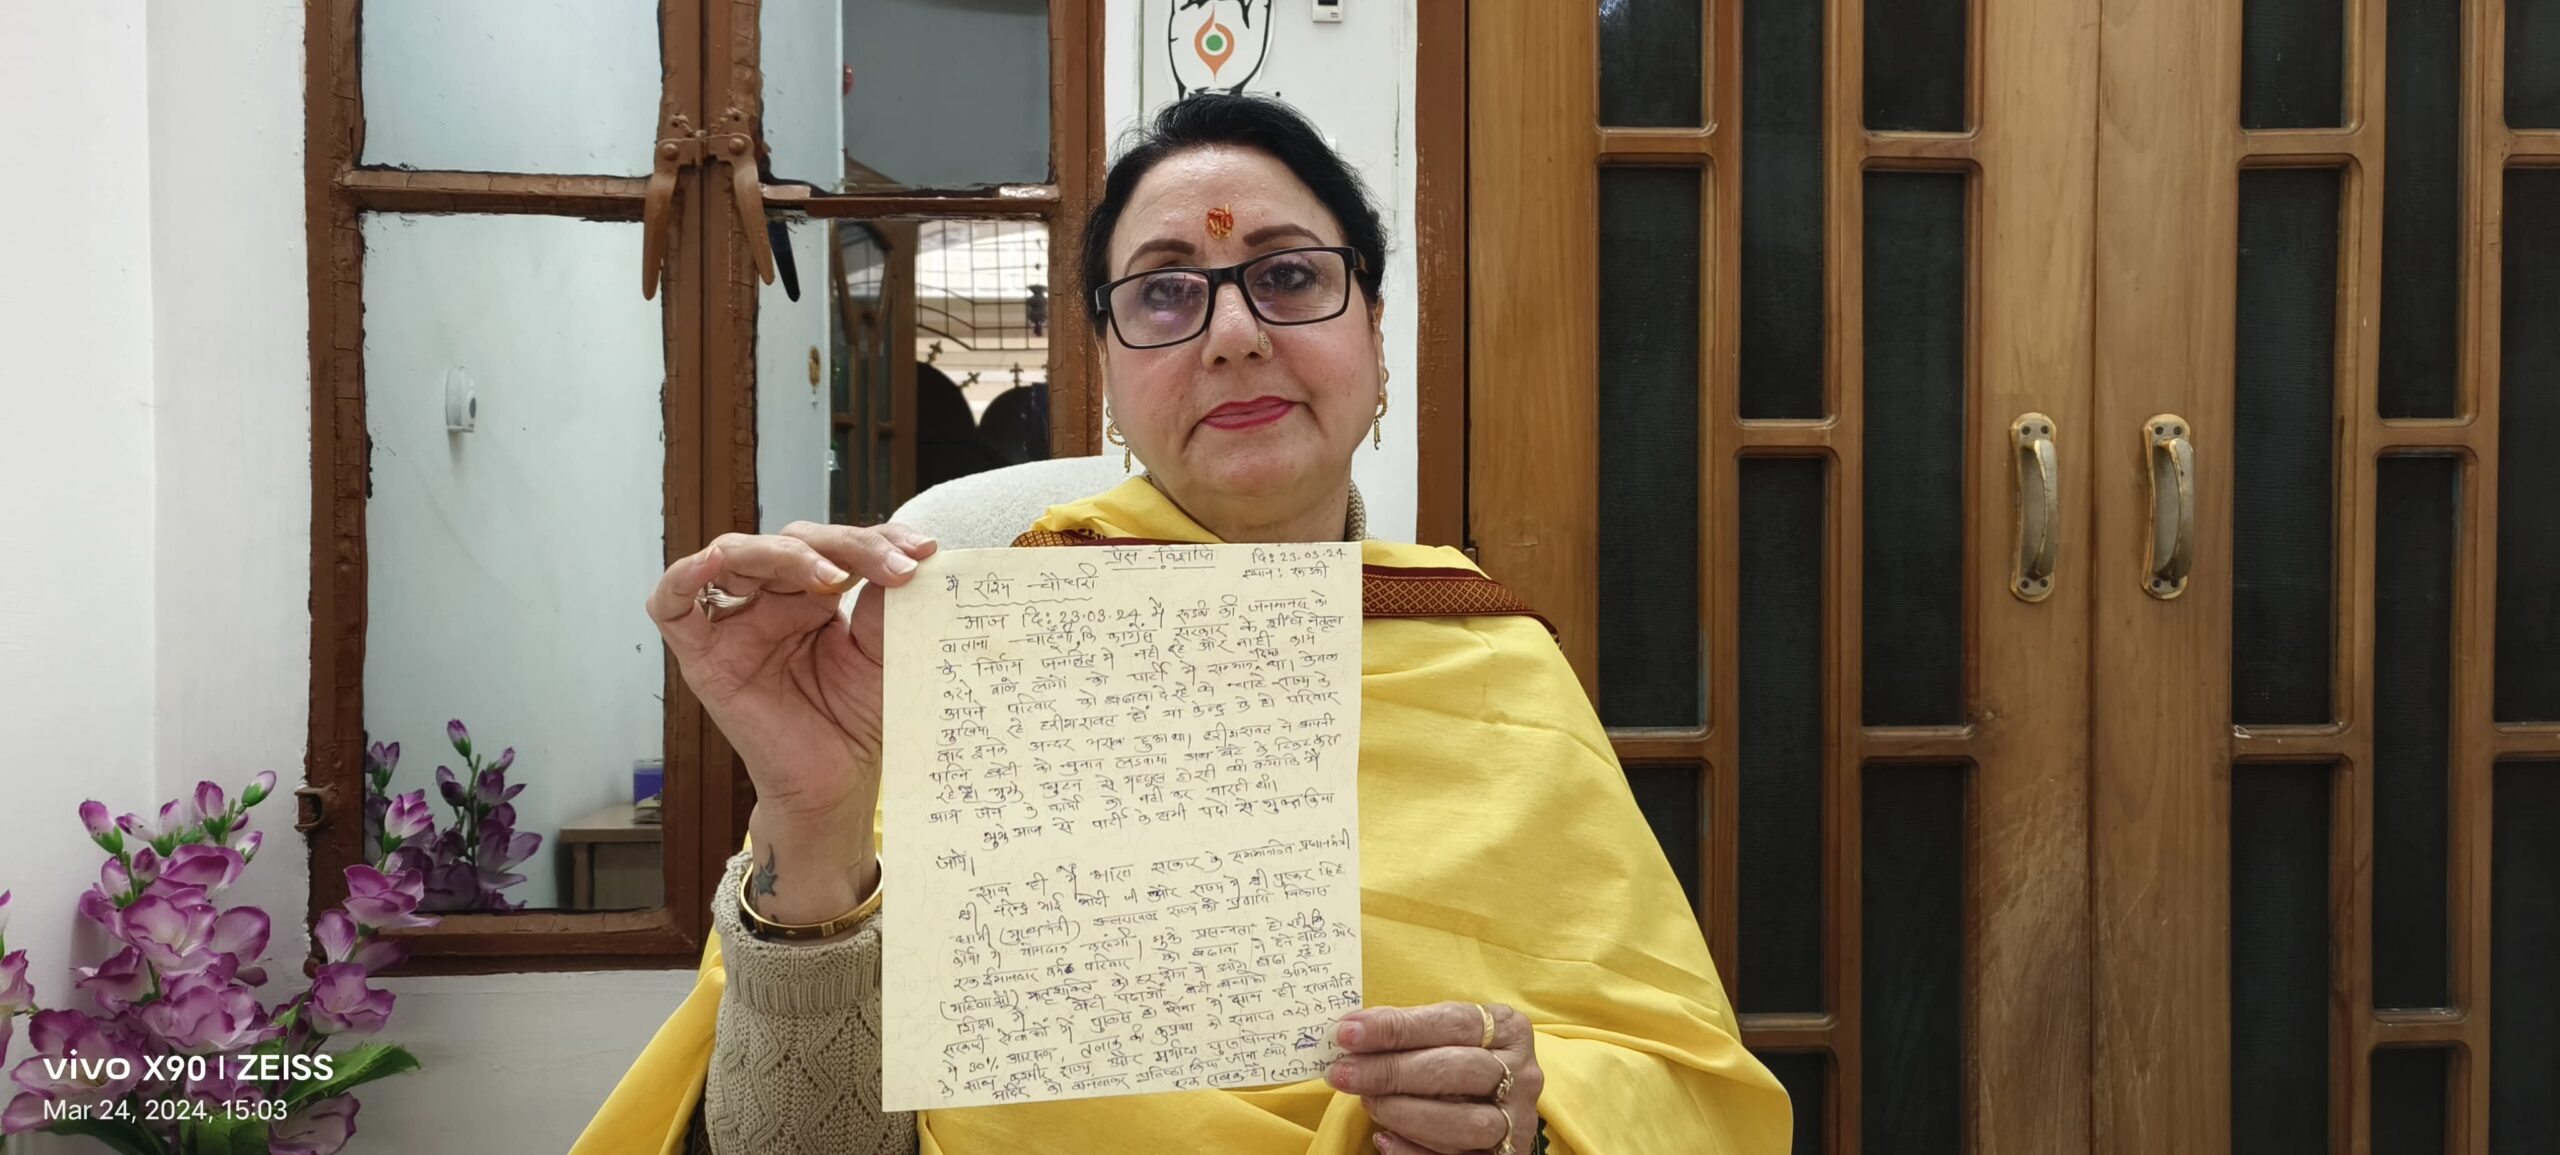 प्रेस-विज्ञप्ति
दि: 23-03-24
स्थान: रुड़की
मैं रश्मि चौधरी
आज दि: 23-03-24 मैं रुड़की की जनमानस को
बताना चाहूँगी, कि कांग्रेस सरकार के शीर्ष नेतृत्व
के निर्णय जनहित में नहीं रहे और नाही काम
करने वाले लोगों को पार्टी में सम्मान दिया था। केवल
अपने परिवार को बढावा दे रहे थे चाहे राज्य के
मुखिया रहे हरीश रावत हों या केन्द्र के हो परिवार
वाद इनके अन्दर भरा हुआ था। हरीश रावत ने अपनी
पत्नि बेटी को चुनाव लडवाया अब बेटे के टिकट
रहे हैं। मुझे घुटन से महसूस हो रही थी क्योंकि मैं
आम जन के कार्यों को नहीं कर पा रही थी।
मुझे आज से पार्टी के सभी पदों से मुक्त किया
जाये।
साथ ही मैं भारत सरकार के सम्मानित प्रधानमंत्री
श्री नरेन्द्र भाई मोदी जी और राज्य में श्री पुष्कर सिंह
धामी (मुख्यमंत्री) उत्तराखण्ड राज्य की प्रगति विकास
कार्यों में योगदान करूंगी। मुझे प्रसन्नता हो रही कि
एक ईमानदार परिवार को बढावा ने देने वाले और
(महिलाओं) मातृशक्ति को हर क्षेत्र में आगे बढा रहे है।
शिक्षा में बेटी पढाओं बेटी बचाओ अभियान
सरकारी सेवकों में पुलिस हो सेना में साथ ही राजनीति
में 30% आरक्षण, तलाक की कुप्रथा को समाप्त करने के निर्णय
के साथ कश्मीर राज्य, और मर्यादा पुरुषोत्तम राम
मंदिर को बनवाकर प्रतिष्ठा किया जाना हमारे
एक सबक है। (रश्मि चौधरी
vivo X90 | ZEISS
Mar 24, 2024, 15:03